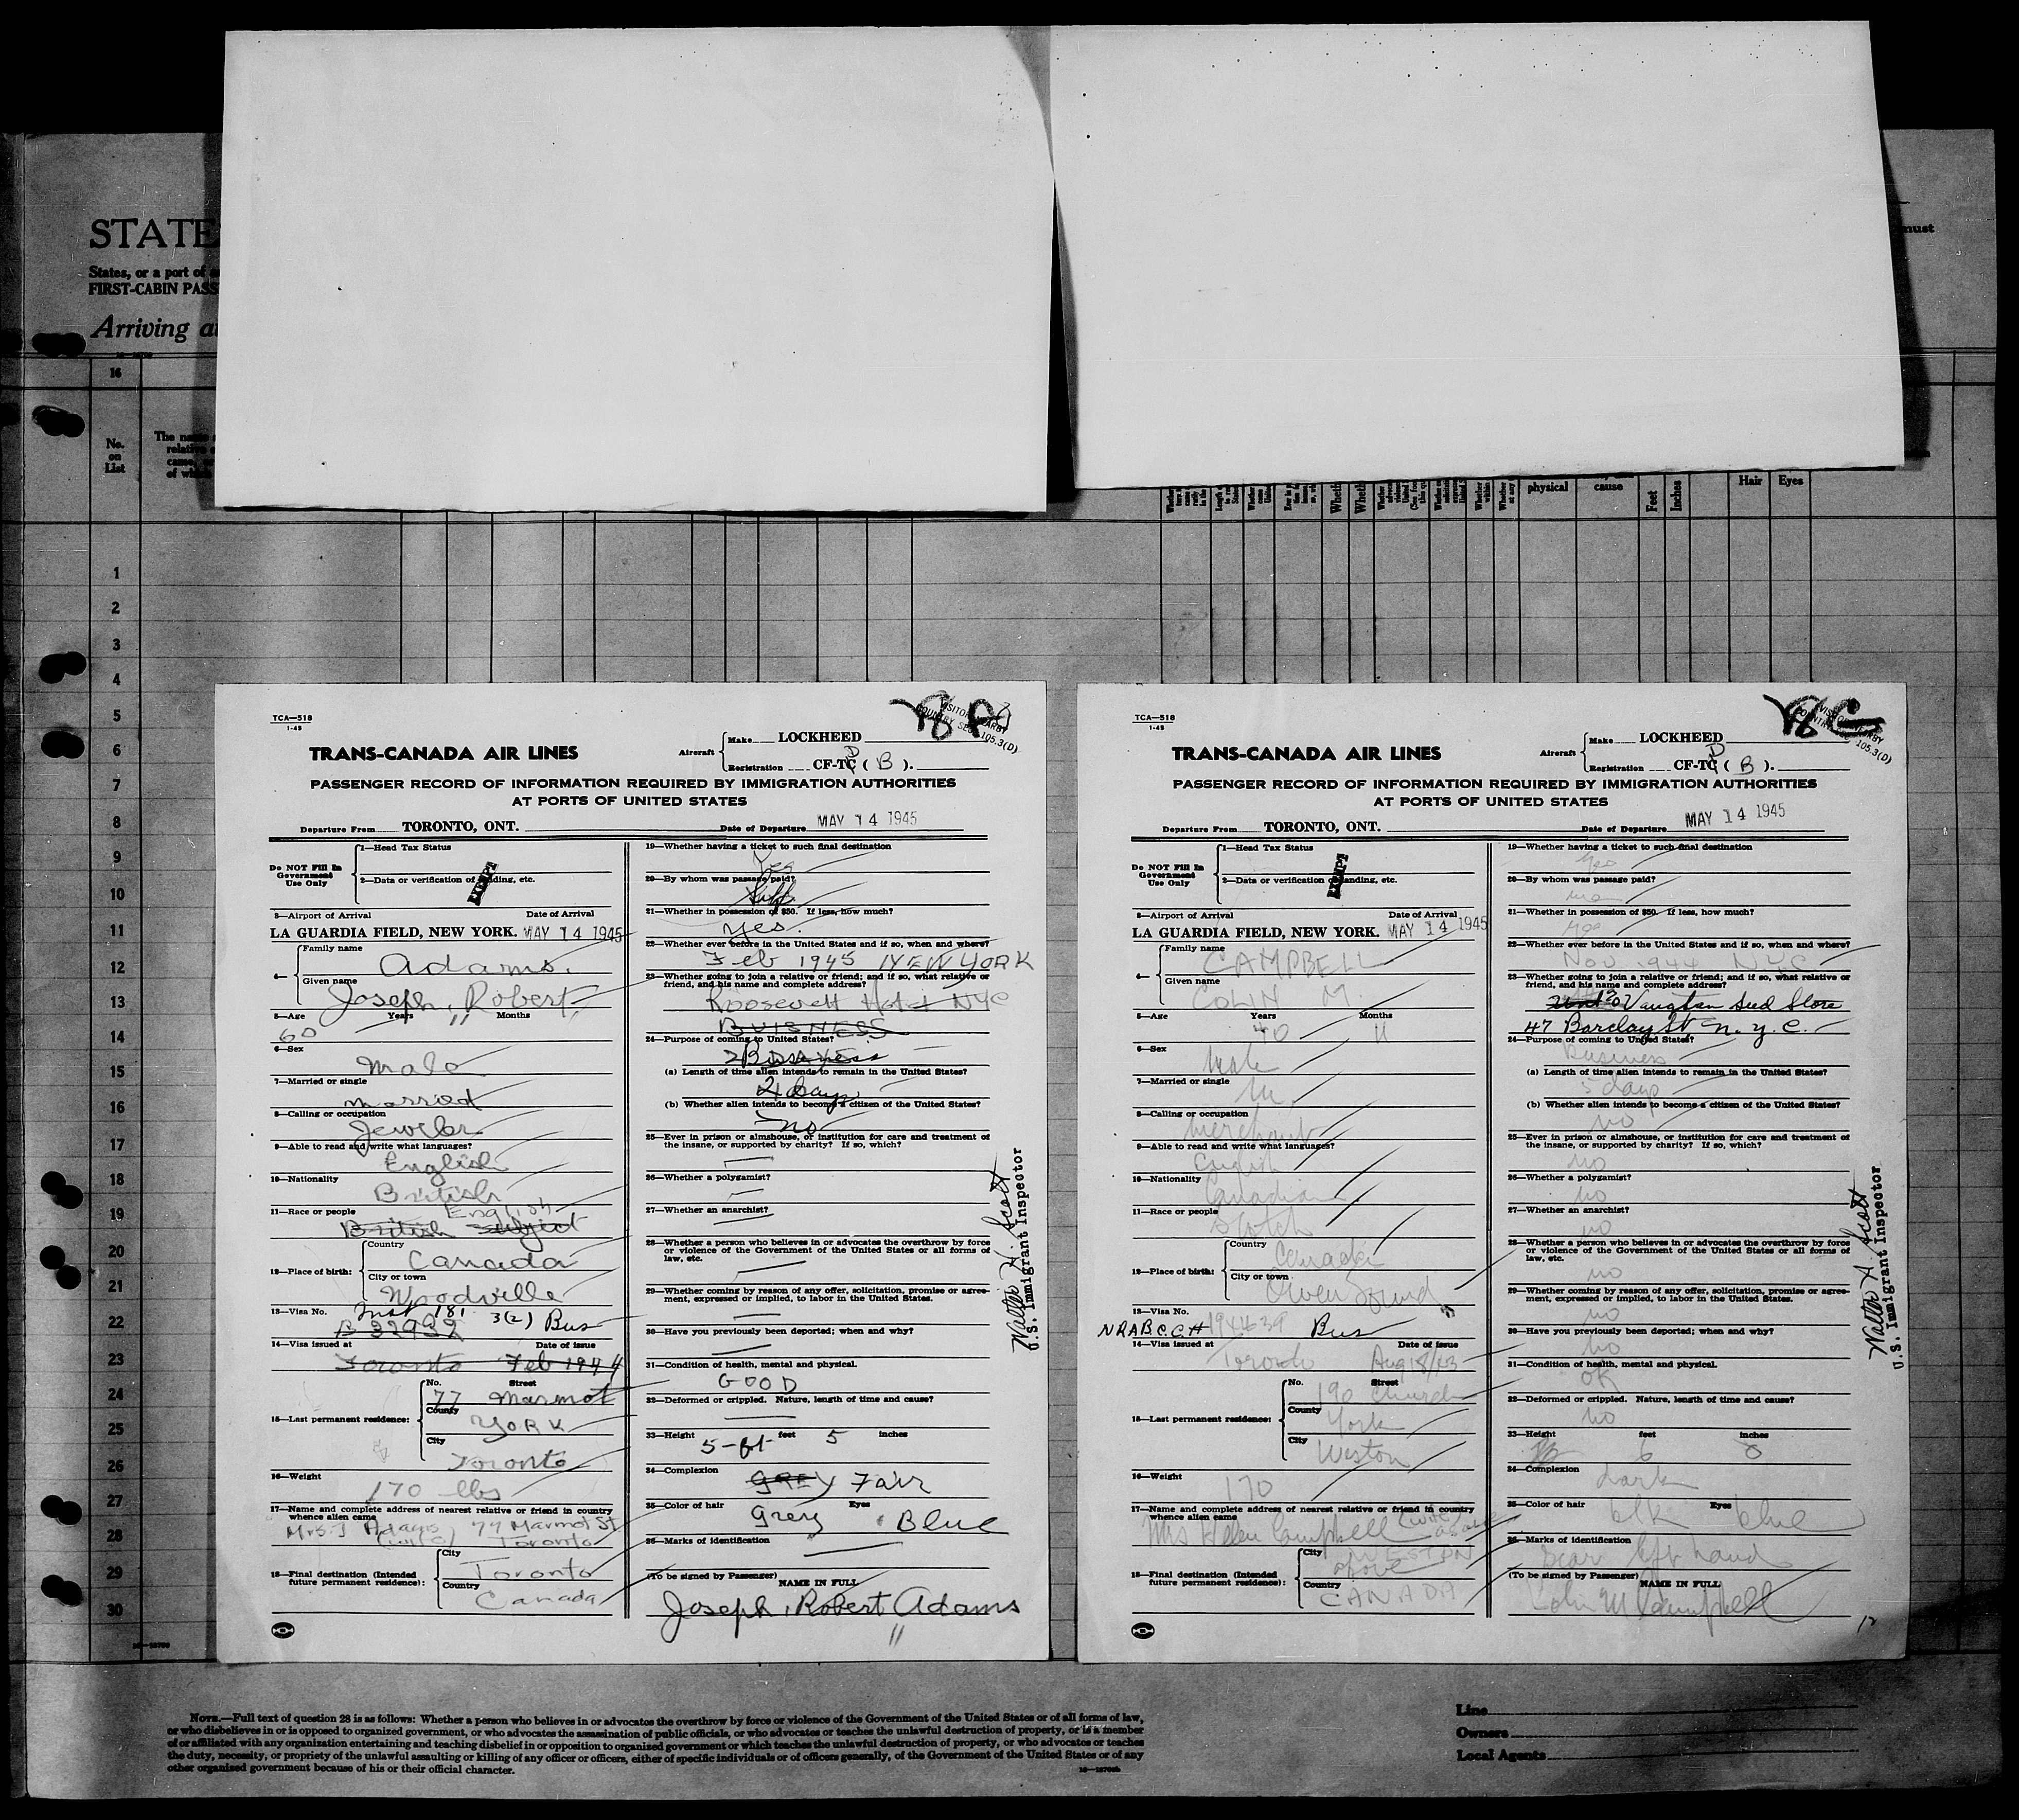 STATE
States, or a port of
FIRST-CABIN PASS
Arriving
must
16
No.
on
List
The
relative
of
physical
cause
Feet
Inches
Hair
Eyes
1
2
3
4
5
6
7
8
9
10
11
12
13
14
15
16
17
18
19
20
21
22
23
24
25
26
27
28
29
30
TCA—518
1-45
TRANS-CANADA AIR LINES
Aircraft
Make LOCKHEED
Registration CF-TC ( B ).
105.3(D)
PASSENGER RECORD OF INFORMATION REQUIRED BY IMMIGRATION AUTHORITIES
AT PORTS OF UNITED STATES
Departure From TORONTO, ONT. Date of Departure MAY 14 1945
Do NOT Fill In
Government
Use Only
1—Head Tax Status
2—Data or verification of landing, etc.
EXEMPT
3—Airport of Arrival Date of Arrival
LA GUARDIA FIELD, NEW YORK. MAY 14 1945
4— Family name
Adams.
Given name
Joseph, Robert
5—Age Years Months
60
6—Sex
Male
7—Married or single
married
8—Calling or occupation
Jeweler
9—Able to read and write what languages?
English
10—Nationality
British
11—Race or people English
British Subject
12—Place of birth:
Country
Canada
City or town
Woodville
13—Visa No. 181 3(2) Bus
14—Visa issued at Date of issue
Toronto Feb 1944
15—Last permanent residence:
No. Street
77 Marmot
County
YORK
City
Toronto
16—Weight
170 lbs
17—Name and complete address of nearest relative or friend in country
whence alien came
Mrs. J Adams 77 Marmot St
(wife) Toronto
18—Final destination (Intended
future permanent residence):
City
Toronto
Country
Canada
19—Whether having a ticket to such final destination
Yes
20—By whom was passage paid?
Self
21—Whether in possession of $50. If less, how much?
Yes.
22—Whether ever before in the United States and if so, when and where?
Feb 1945 NEW YORK
23—Whether going to join a relative or friend; and if so, what relative or
friend, and his name and complete address?
Roosevelt Hotel NYC
BUISNESS
24—Purpose of coming to United States?
Business
(a) Length of time alien intends to remain in the United States?
days
(b) Whether alien intends to become a citizen of the United States?
no
25—Ever in prison or almshouse, or institution for care and treatment of
the insane, or supported by charity? If so, which?
26—Whether a polygamist?
27—Whether an anarchist?
28—Whether a person who believes in or advocates the overthrow by force
or violence of the Government of the United States or all forms of
law, etc.
29—Whether coming by reason of any offer, solicitation, promise or agree-
ment, expressed or implied, to labor in the United States.
30—Have you previously been deported; when and why?
31—Condition of health, mental and physical.
GOOD
32—Deformed or crippled. Nature, length of time and cause?
33—Height feet inches
5-ft 5
34—Complexion
GREY Fair
35—Color of hair Eyes
Grey Blue
36—Marks of identification
(To be signed by Passenger)
NAME IN FULL
Joseph, Robert Adams
Walter H. Scott
U.S. Immigrant Inspector
TCA—518
1-45
TRANS-CANADA AIR LINES
Aircraft
Make LOCKHEED
Registration CF-TC ( B ).
105.3(D)
PASSENGER RECORD OF INFORMATION REQUIRED BY IMMIGRATION AUTHORITIES
AT PORTS OF UNITED STATES
Departure From TORONTO, ONT. Date of Departure MAY 14 1945
Do NOT Fill In
Government
Use Only
1—Head Tax Status
2—Data or verification of landing, etc.
EXEMPT
3—Airport of Arrival Date of Arrival
LA GUARDIA FIELD, NEW YORK. MAY 14 1945
4— Family name
CAMPBELL
Given name
COLIN M.
5—Age Years Months
40 11
6—Sex
Male
7—Married or single
M.
8—Calling or occupation
Merchant
9—Able to read and write what languages?
English
10—Nationality
Canadian
11—Race or people
Scotch
12—Place of birth:
Country
Canada
City or town
Owen Sound
13—Visa No.
NRABCCH 194439 Bus
14—Visa issued at Date of issue
Toronto Aug 18/43
15—Last permanent residence:
No. Street
190 Church
County
York
City
Weston
16—Weight
170
17—Name and complete address of nearest relative or friend in country
whence alien came
Mrs Helen Campbell (wife) as above
18—Final destination (Intended
future permanent residence):
City WESTON
above
Country
CANADA
19—Whether having a ticket to such final destination
Yes
20—By whom was passage paid?
21—Whether in possession of $50. If less, how much?
Yes
22—Whether ever before in the United States and if so, when and where?
Nov 1944 NYC
23—Whether going to join a relative or friend; and if so, what relative or
friend, and his name and complete address?
Vaughan Seed Store
47 Barclay St, N.Y.C.
24—Purpose of coming to United States?
Business
(a) Length of time alien intends to remain in the United States?
5 days
(b) Whether alien intends to become a citizen of the United States?
no
25—Ever in prison or almshouse, or institution for care and treatment of
the insane, or supported by charity? If so, which?
no
26—Whether a polygamist?
no
27—Whether an anarchist?
no
28—Whether a person who believes in or advocates the overthrow by force
or violence of the Government of the United States or all forms of
law, etc.
no
29—Whether coming by reason of any offer, solicitation, promise or agree-
ment, expressed or implied, to labor in the United States.
no
30—Have you previously been deported; when and why?
no
31—Condition of health, mental and physical.
OK
32—Deformed or crippled. Nature, length of time and cause?
no
33—Height feet inches
6 0
34—Complexion
dark
35—Color of hair Eyes
blk blue
36—Marks of identification
Scar left hand
(To be signed by Passenger)
NAME IN FULL
Colin M Campbell
12
Walter H Scott
U.S. Immigrant Inspector
NOTE.—Full text of question 28 is as follows: Whether a person who believes in or advocates the overthrow by force or violence of the Government of the United States or of all forms of law,
or who disbelieves in or is opposed to organized government, or who advocates the assassination of public officials, or who advocates or teaches the unlawful destruction of property, or is a member
of or affiliated with any organization entertaining and teaching disbelief in or opposition to organized government or which teaches the unlawful destruction of property, or who advocates or teaches
the duty, necessity, or propriety of the unlawful assaulting or killing of any officer or officers, either of specific individuals or of officers generally, of the Government of the United States or of any
other organized government because of his or their official character.
Line
Owners
Local Agents